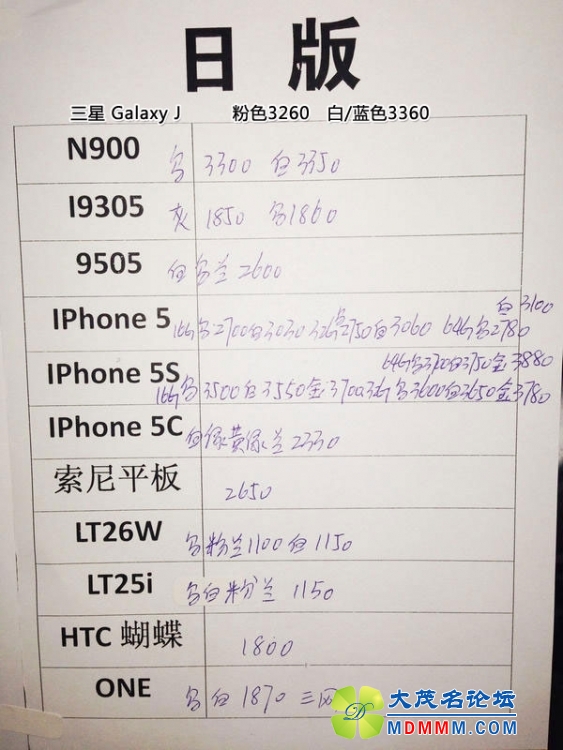 日版
三星 Galaxy J 粉色3260 白/蓝色3360
N900 乌 3300 白3350
I9305 灰 1850 乌1860
9505 白乌兰2600
白3100
IPhone 5 16G乌2700白3030 32G乌2750白3060 64G乌2780
64G乌3700白3750金3880
IPhone 5S 16G乌3500白3550金3700 32G乌3600白3650金3780
IPhone 5C 白绿黄 兰2330
索尼平板 2650
LT26W 乌粉兰1100白1150
LT25i 乌白粉兰 1150
HTC 蝴蝶 1800
ONE 乌白 1870 三网
大茂名论坛
MDMMM.COM